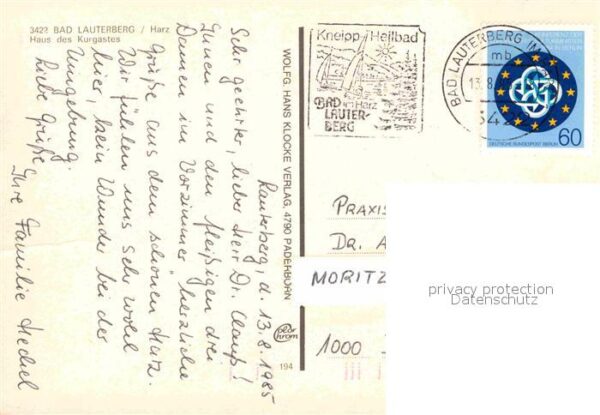 3423 BAD LAUTERBERG / Harz
Haus des Kurgastes
Lauterberg, d. 13.8.1985
Sehr geehrter, lieber Herr Dr.
Ihnen und den fleißigen drei
Damen im "Vorzimmer" herzliche
Grüße aus dem schönen Harz.
Wir fühlen uns sehr wohl
hier, kein Wunder bei der
Umgebung.
Liebe Grüße
Ihre Familie Heckel
WOLFG. HANS KLOCKE VERLAG, 4790 PADERBORN
Color
Chrom
194
Kneipp-Heilbad
BAD
im Harz
LAUTER-
BERG
BAD LAUTERBERG IM
mb
13.8.
342
60
DEUTSCHE BUNDESPOST BERLIN
PRAXIS
DR. A
MORITZ
1000
privacy protection
Datenschutz